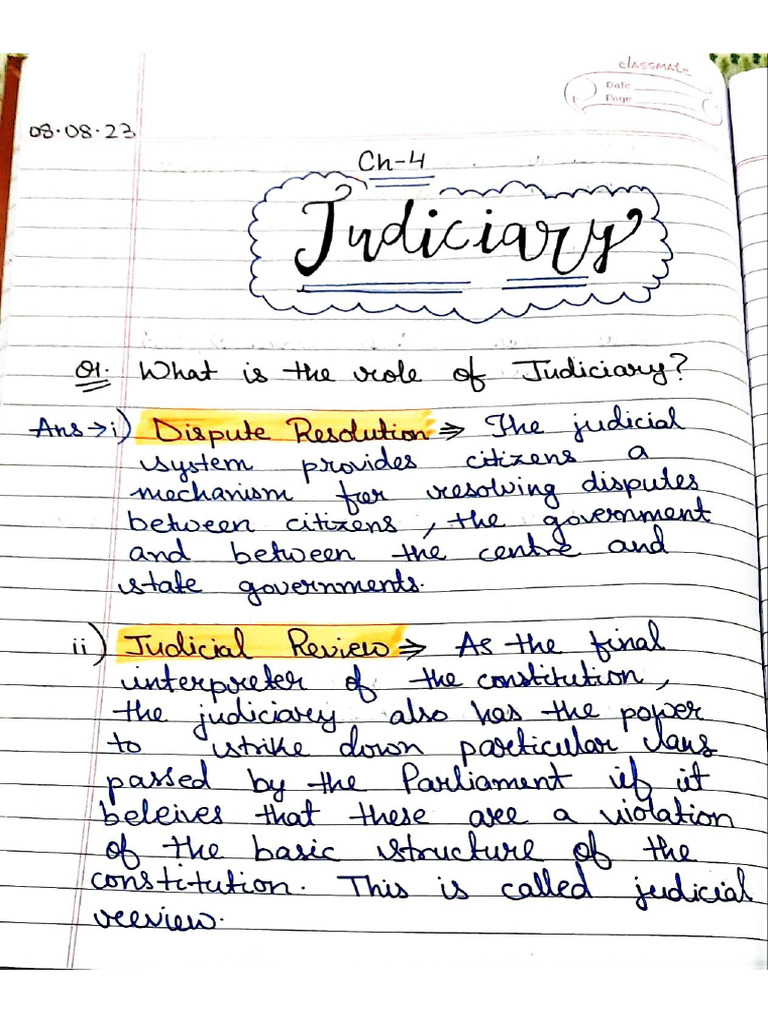 classmate
Date
Page
08.08.23
Ch-4
Judiciary
Q1. What is the role of Judiciary?
Ans→i) Dispute Resolution ⇒ The judicial
system provides citizens a
mechanism for resolving disputes
between citizens, the government
and between the centre and
state governments.
ii) Judicial Review ⇒ As the final
interpreter of the constitution,
the judiciary also has the power
to strike down particular laws
passed by the Parliament if it
beleives that these are a violation
of the basic structure of the
constitution. This is called judicial
reeview.